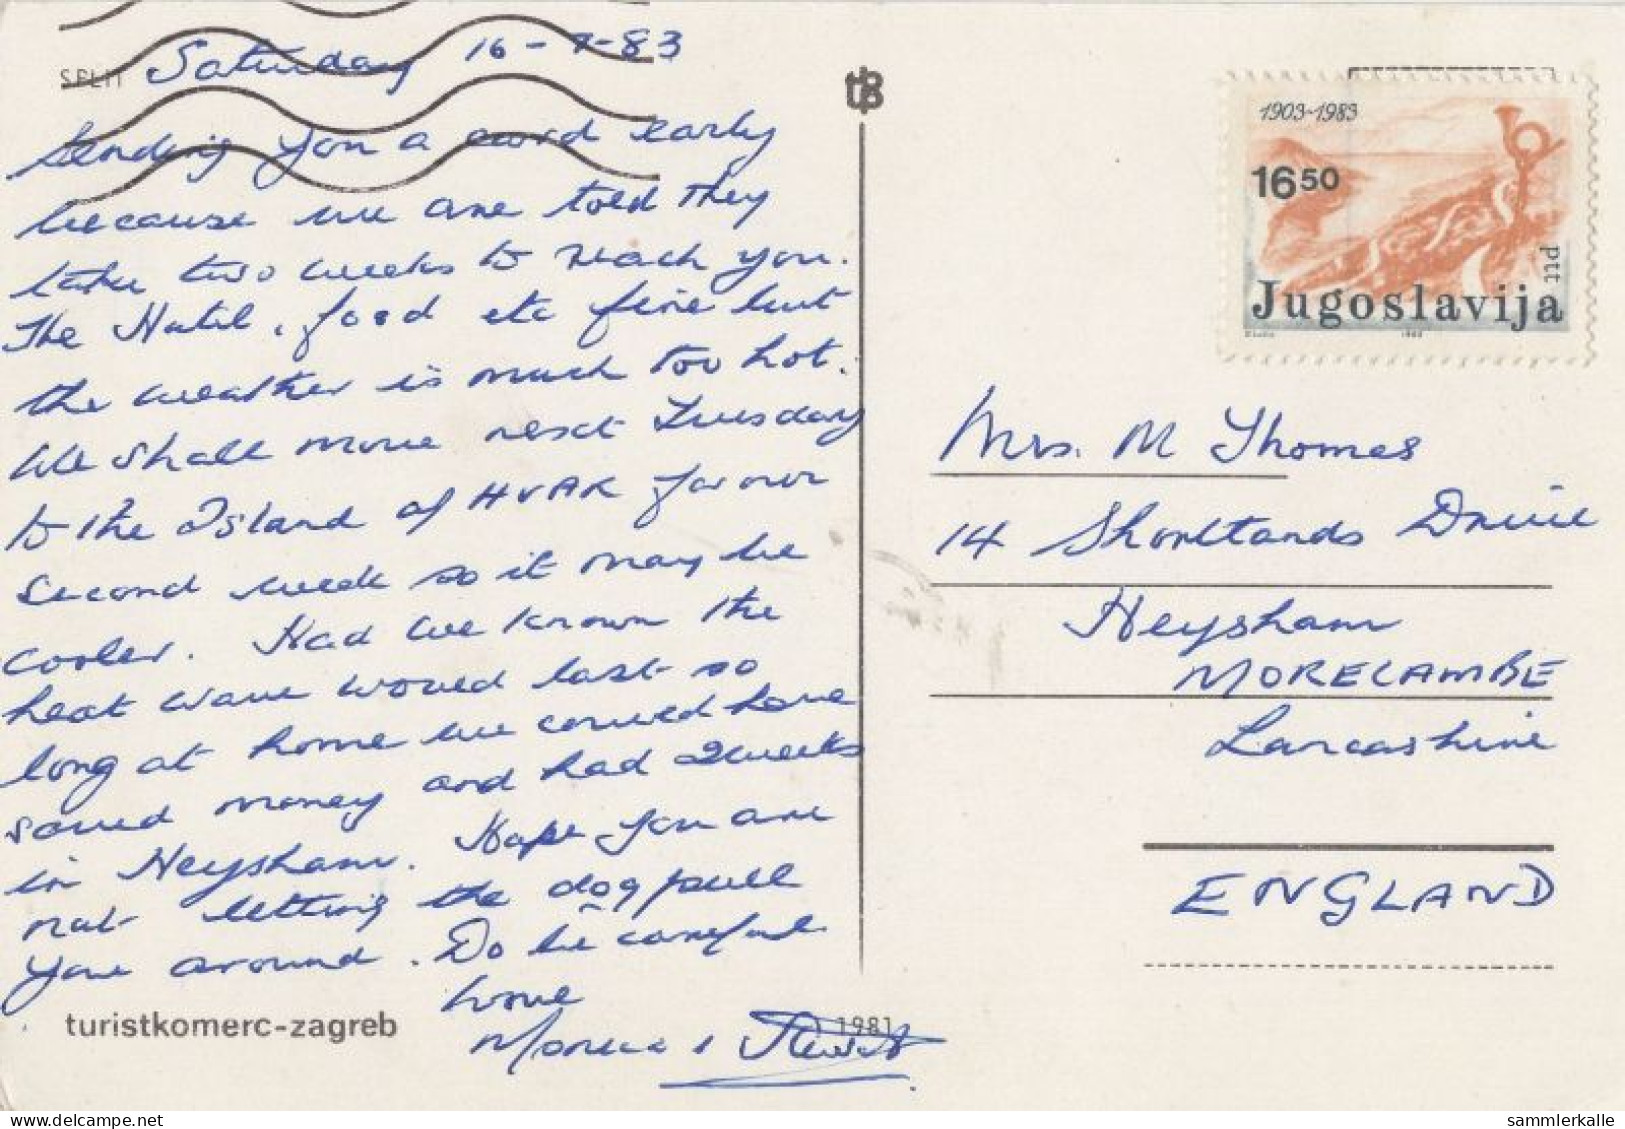 SPLIT
Saturday 16-7-83
Sending you a card early
because we are told they
take two weeks to reach you.
The Hotel, food etc fine but
the weather is much too hot.
We shall move next Tuesday
to the Island of HVAR for our
second week so it may be
cooler. Had we known the
heat wave would last so
long at home we could have
saved money and had 2 weeks
in Heysham. Hope you are
not letting the dog pull
you around. Do be careful
love
turistkomerc-zagreb
1981
tz
1903-1983
16 50
ptt
Jugoslavija
Mrs. M Thomas
14 Shortlands Drive
Heysham
MORECAMBE
Lancashire
ENGLAND
www.delcampe.net
sammlerkalle